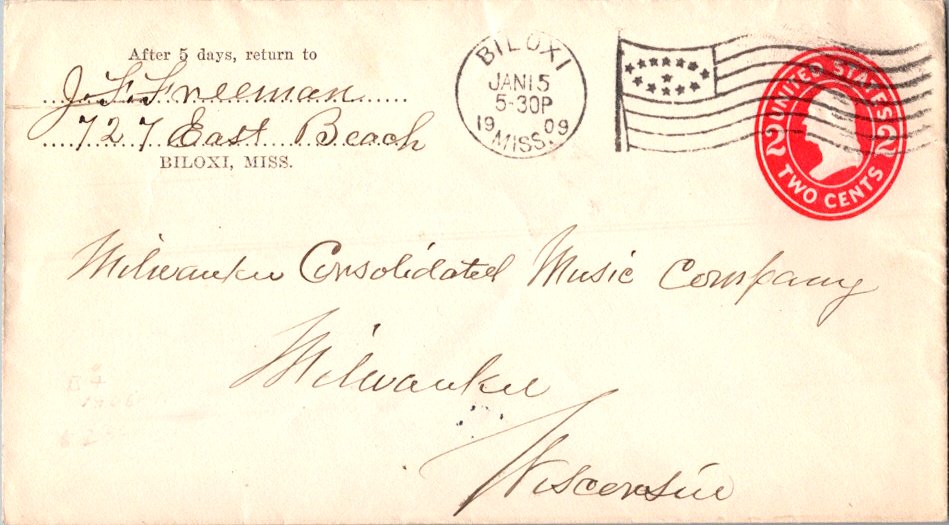 After 5 days, return to
J. F. Freeman
727 East Beach
BILOXI, MISS.
BILOXI
JAN 15
5-30P
19 09
MISS.
UNITED STATES
2 2
TWO CENTS
Milwaukee Consolidated Music Company
Milwaukee
Wisconsin